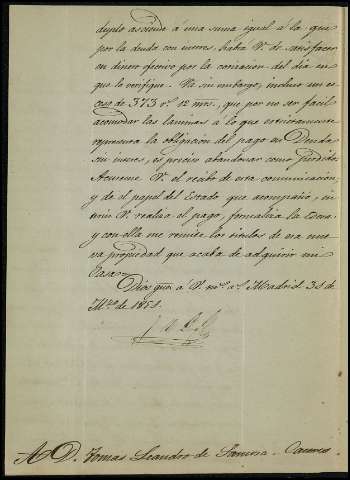 duplo asciende á una suma igual á la que
por la deuda con interes, habia V. de satisfacer
en dinero efectivo por la cotizacion del dia en
que lo verifique. Va sin embargo, incluso un es-
ceso de 373 r.s 12 mrs, que por no ser facil
acomodar las laminas á lo que estrictamente
representa la obligacion del pago en Deuda
sin interes, es preciso abandonar como perdido.
Acuseme V. el recibo de esta comunicacion
y de el papel del Estado que acompaño, in-
terin V. realiza el pago, formaliza la Escra.
y con ella me remite los titulos de esa nue-
va propiedad que acaba de adquirir mi
Casa.
Dios gue á V. ms. as. Madrid 31 de
Mzo de 1851.
A D. Tomas Leandro de - Caceres